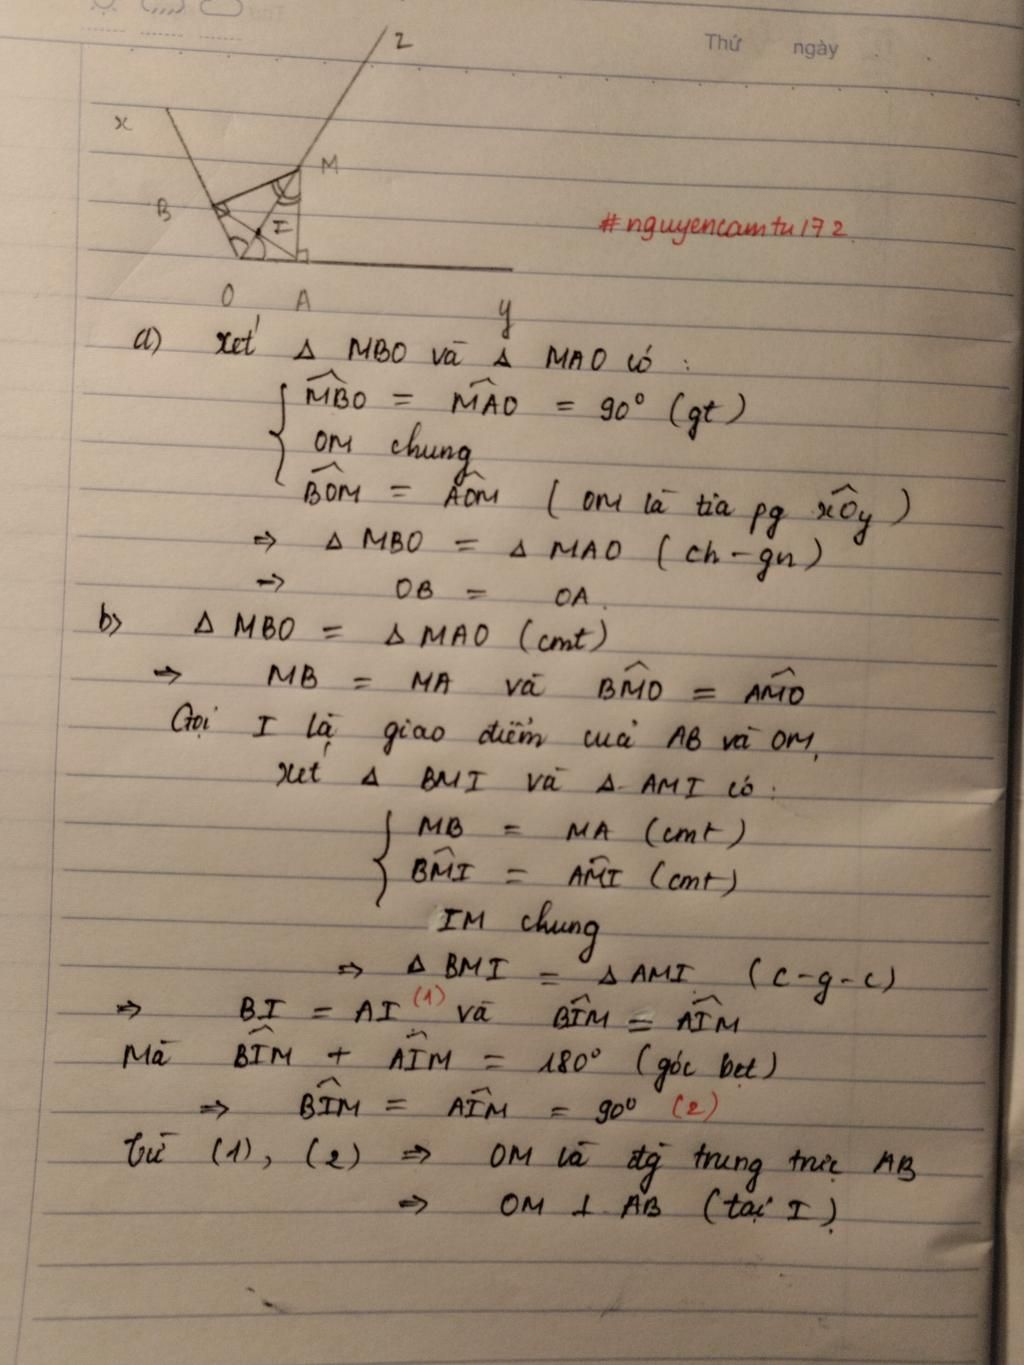 Thứ ngày
z
x
M
B
I
#nguyencamtu172
O A y
a) Xét Δ MBO và Δ MAO có :
MBO = MAO = 90° (gt)
OM chung
BOM = AOM ( OM là tia pg xOy )
=> Δ MBO = Δ MAO ( ch - gn )
=> OB = OA.
b) Δ MBO = Δ MAO (cmt)
=> MB = MA và BMO = AMO
Gọi I là giao điểm của AB và OM.
Xét Δ BMI và Δ AMI có :
MB = MA (cmt)
BMI = AMI (cmt)
IM chung
=> Δ BMI = Δ AMI (c-g-c)
=> BI = AI (1) và BIM = AIM
Mà BIM + AIM = 180° (góc bẹt)
=> BIM = AIM = 90° (2)
Từ (1), (2) => OM là đg trung trực AB
=> OM ⊥ AB (tại I)